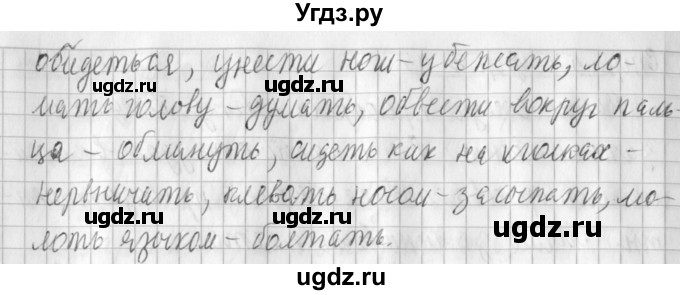 Угдз.ру
обидеться, унести ног - убежать, ло-
мать голову - думать, обвести вокруг паль-
ца - обмануть, сидеть как на иголках -
нервничать, клевать носом - засыпать, мо-
лоть языком - болтать.
ugdz.ru
ugdz.ru
ugdz.ru
ugdz.ru
ugdz.ru
ugdz.ru
ugdz.ru
ugdz.ru
ugdz.ru